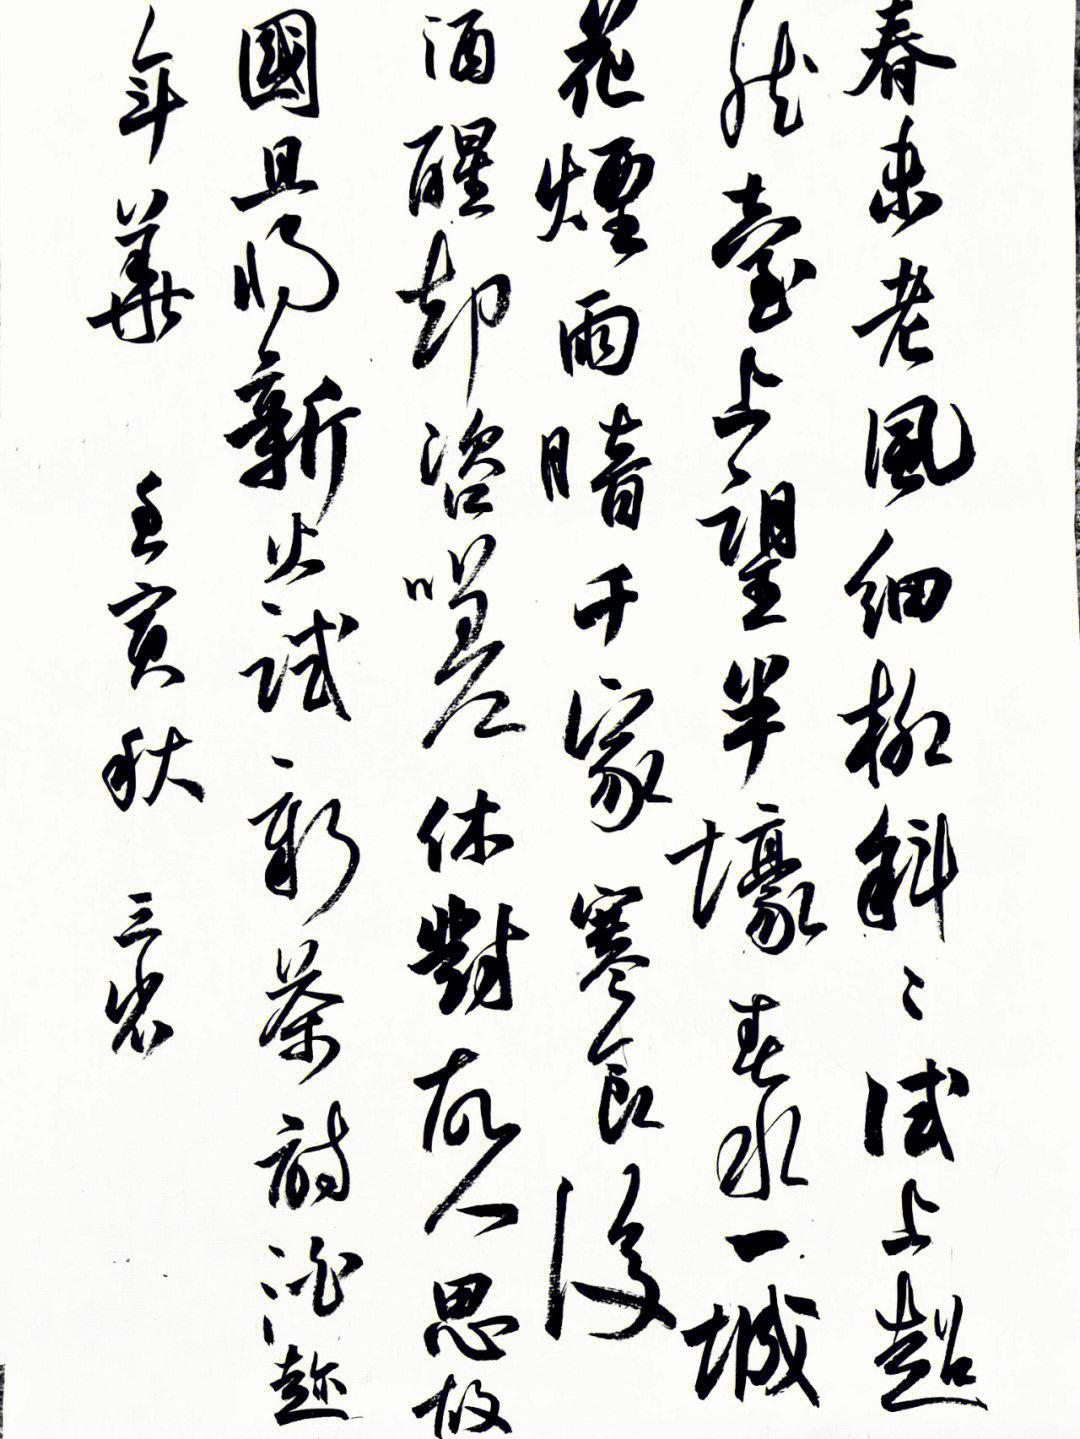 春未老風細柳斜〻試上超
然臺上望半壕春水一城
花煙雨暗千家寒食後
酒醒却咨嗟休對故人思故
國且將新火試新茶詩酒趁
年華 壬寅秋 三